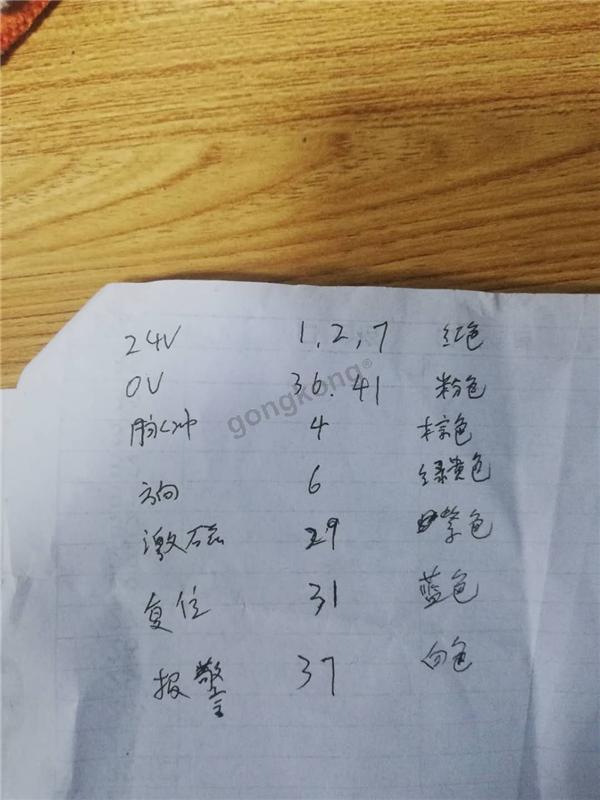 24V 1,2,7 红色
0V 36.41 粉色
gongkong®
脉冲 4 棕色
方向 6 绿黄色
激磁 29 紫色
复位 31 蓝色
报警 37 白色